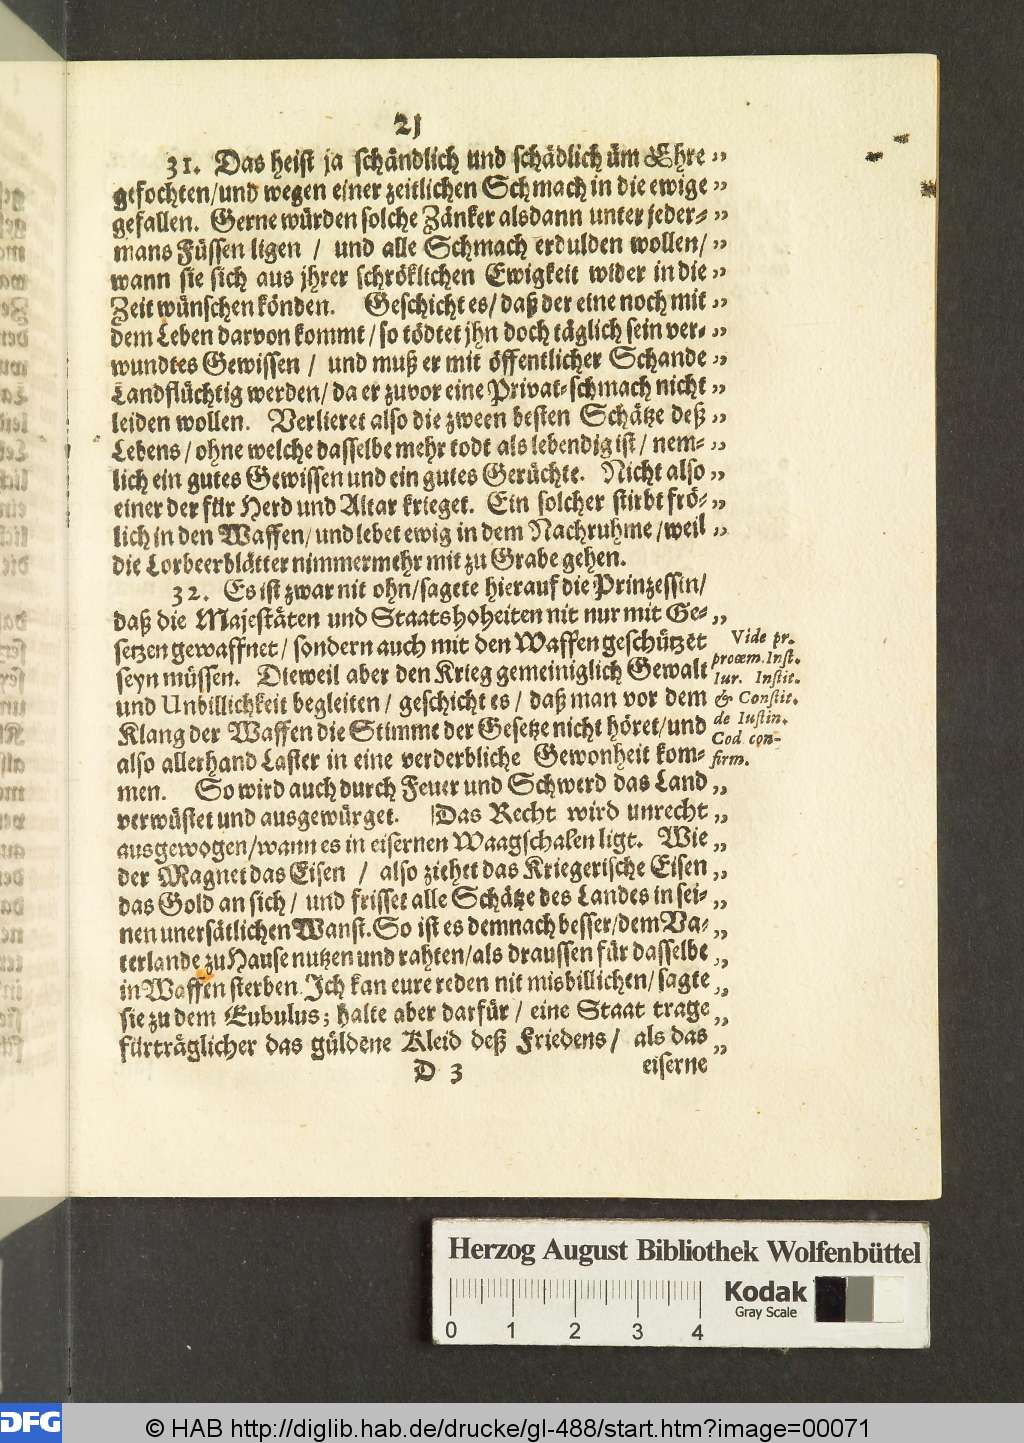 21
31. Das heist ja schändlich und schädlich üm Ehre „
gefochten/und wegen einer zeitlichen Schmach in die ewige „
gefallen. Gerne würden solche Zänker alsdann unter jeder- „
mans Füssen ligen / und alle Schmach erdulden wollen/ „
wann sie sich aus jhrer schröklichen Ewigkeit wider in die „
Zeit wünschen könden. Geschicht es/ daß der eine noch mit „
dem Leben darvon kommt/so tödtet jhn doch täglich sein ver- „
wundtes Gewissen / und muß er mit öffentlicher Schande „
Landflüchtig werden/ da er zuvor eine Privat-schmach nicht „
leiden wollen. Verlieret also die zween besten Schätze deß „
Lebens/ohne welche dasselbe mehr todt als lebendig ist/ nem- „
lich ein gutes Gewissen und ein gutes Gerüchte. Nicht also „
einer der für Herd und Altar krieget. Ein solcher stirbt frö- „
lich in den Waffen/und lebet ewig in dem Nachruhme/weil „
die Lorbeerblätter nimmermehr mit zu Grabe gehen.
32. Es ist zwar nit ohn/sagete hierauf die Prinzessin/
daß die Majestäten und Staatshoheiten nit nur mit Ge- „
setzen gewaffnet/ sondern auch mit den Waffen geschützet
seyn müssen. Dieweil aber den Krieg gemeiniglich Gewalt
und Unbillichkeit begleiten/ geschicht es/ daß man vor dem
Klang der Waffen die Stimme der Gesetze nicht höret/und
also allerhand Laster in eine verderbliche Gewonheit kom-
men. So wird auch durch Feuer und Schwerd das Land „
verwüstet und ausgewürget. Das Recht wird unrecht „
ausgewogen/wann es in eisernen Waagschalen ligt. Wie „
der Magnet das Eisen / also ziehet das Kriegerische Eisen „
das Gold an sich/ und frisset alle Schätze des Landes in sei- „
nen unersätlichen Wanst. So ist es demnach besser/dem Va- „
terlande zu Hause nutzen und rahten/als draussen für dasselbe „
in Waffen sterben. Ich kan eure reden nit misbillichen/ sagte „
sie zu dem Eubulus; halte aber darfür/ eine Staat trage „
fürträglicher das güldene Kleid deß Friedens/ als das „
D 3 eiserne
Vide pr.
proœm. Inst.
Iur. Instit.
& Constit.
de Iustin.
Cod. con-
firm.
Herzog August Bibliothek Wolfenbüttel
Kodak
Gray Scale
0 1 2 3 4
DFG © HAB http://diglib.hab.de/drucke/gl-488/start.htm?image=00071